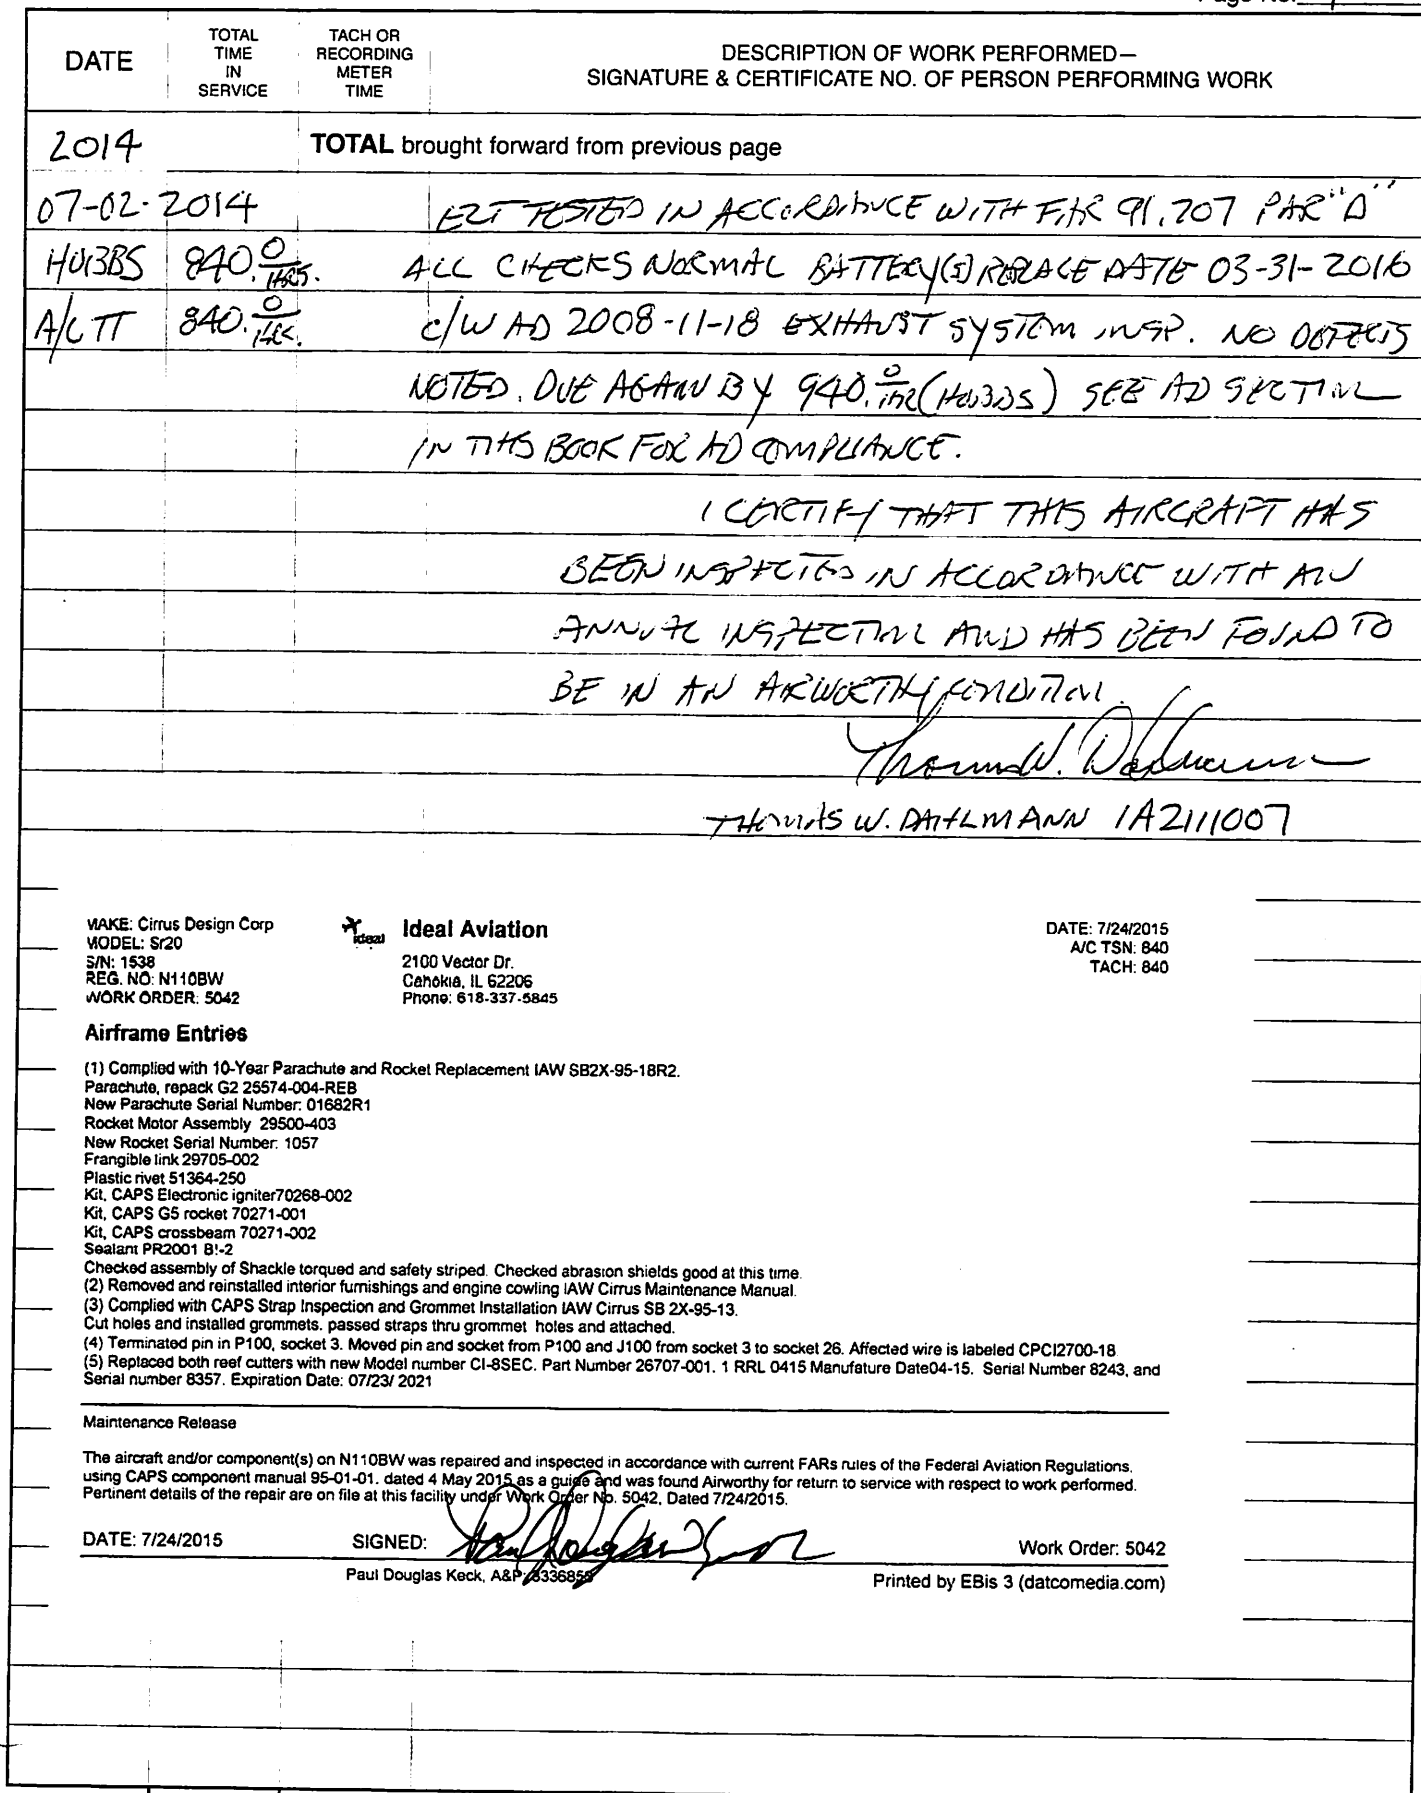 Page No.
DATE
TOTAL TIME IN SERVICE
TACH OR RECORDING METER TIME
DESCRIPTION OF WORK PERFORMED—
SIGNATURE & CERTIFICATE NO. OF PERSON PERFORMING WORK
2014 TOTAL brought forward from previous page
07-02-2014 ELT TESTED IN ACCORDANCE WITH FAR 91.207 PAR "D"
HOBBS 840.0 HRS. ALL CHECKS NORMAL BATTERY(S) REPLACE DATE 03-31-2016
A/C TT 840.0 HRS. C/W AD 2008-11-18 EXHAUST SYSTEM INSP. NO DEFECTS
NOTED. DUE AGAIN BY 940.0 HR (HOBBS) SEE AD SECTION
IN THIS BOOK FOR AD COMPLIANCE.
I CERTIFY THAT THIS AIRCRAFT HAS
BEEN INSPECTED IN ACCORDANCE WITH AN
ANNUAL INSPECTION AND HAS BEEN FOUND TO
BE IN AN AIRWORTHY CONDITION.
Thomas W. Dahlmann
THOMAS W. DAHLMANN IA2111007
MAKE: Cirrus Design Corp
MODEL: Sr20
S/N: 1538
REG. NO: N110BW
WORK ORDER: 5042
ideal Ideal Aviation
2100 Vector Dr.
Cahokia, IL 62206
Phone: 618-337-5845
DATE: 7/24/2015
A/C TSN: 840
TACH: 840
Airframe Entries
(1) Complied with 10-Year Parachute and Rocket Replacement IAW SB2X-95-18R2.
Parachute, repack G2 25574-004-REB
New Parachute Serial Number: 01682R1
Rocket Motor Assembly 29500-403
New Rocket Serial Number: 1057
Frangible link 29705-002
Plastic rivet 51364-250
Kit, CAPS Electronic igniter70268-002
Kit, CAPS G5 rocket 70271-001
Kit, CAPS crossbeam 70271-002
Sealant PR2001 B!-2
Checked assembly of Shackle torqued and safety striped. Checked abrasion shields good at this time.
(2) Removed and reinstalled interior furnishings and engine cowling IAW Cirrus Maintenance Manual.
(3) Complied with CAPS Strap Inspection and Grommet Installation IAW Cirrus SB 2X-95-13.
Cut holes and installed grommets. passed straps thru grommet holes and attached.
(4) Terminated pin in P100, socket 3. Moved pin and socket from P100 and J100 from socket 3 to socket 26. Affected wire is labeled CPCI2700-18
(5) Replaced both reef cutters with new Model number CI-8SEC. Part Number 26707-001. 1 RRL 0415 Manufature Date04-15. Serial Number 8243, and
Serial number 8357. Expiration Date: 07/23/ 2021
Maintenance Release
The aircraft and/or component(s) on N110BW was repaired and inspected in accordance with current FARs rules of the Federal Aviation Regulations.
using CAPS component manual 95-01-01. dated 4 May 2015 as a guide and was found Airworthy for return to service with respect to work performed.
Pertinent details of the repair are on file at this facility under Work Order No. 5042, Dated 7/24/2015.
DATE: 7/24/2015 SIGNED: Work Order: 5042
Paul Douglas Keck, A&P:
Printed by EBis 3 (datcomedia.com)